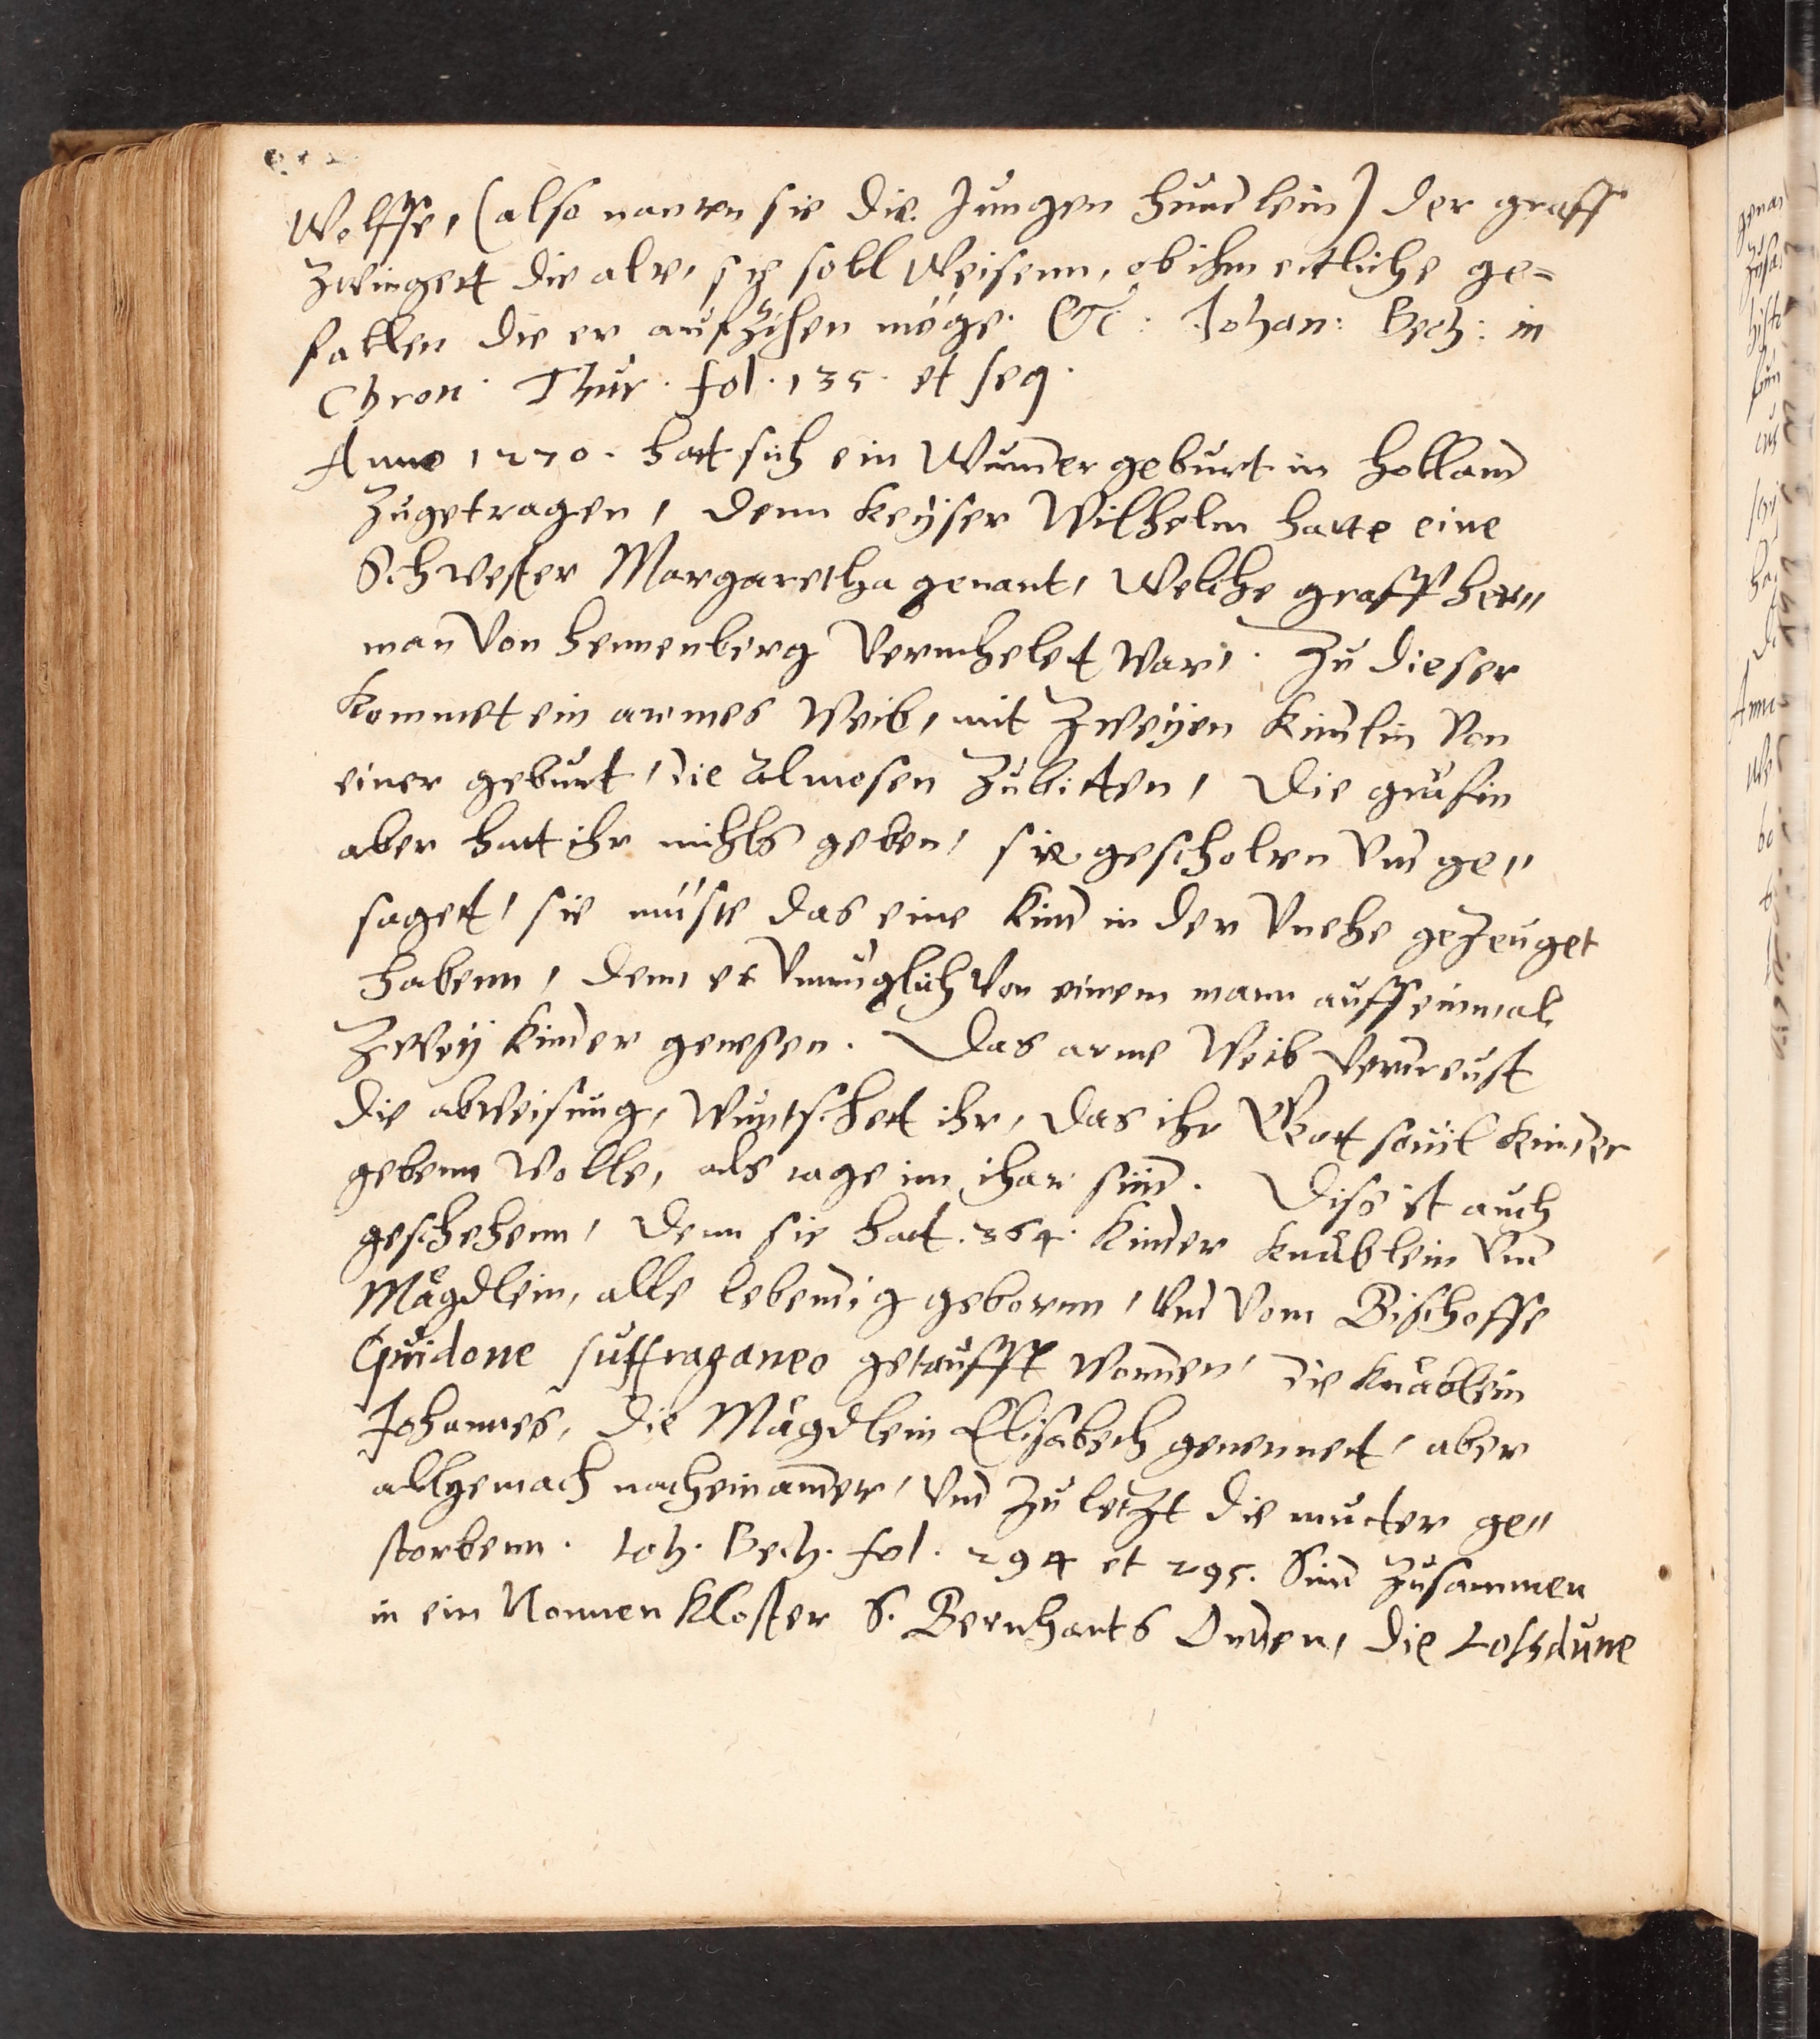 Wolffe, (also nanten sie die Jungen hundlein) der graff
zwinget die alte, sie soll weisenn, ob ihm etliche ge-
fallen die er aufzihen möge. Etc: Johan: Bech: in
Chron. Thur. fol. 135. et seq.
Anno 1270. hatt sich ein Wunder geburt in Holland
zugetragen, denn keyser Wilhelm hatte eine
Schwester Margaretha genant, welche graff Her„
man von Hennenberg vermhelet war. Zu dieser
kommet ein armes Weib, mit zweyen kindlin von
einer geburt, die Almosen zubitten, die gräfin
aber hatt ihr nichts geben, sie gescholten vnd ge„
saget, sie müste das eine kind in der vnehe gezeuget
habenn, denn es vnmüglich von einem mann auff einmal
zwey kinder genesen. Das arme Weib verdreust
die abweisung, wuntschet ihr, das ihr Gott souil kinder
gebenn wolle, als tage im ihar sind. Diss ist auch
geschehenn, denn sie hatt .364. kinder knäblein vnd
Mägdlein, alle lebendig geborenn, vnd vom Bischoffe
Guidone suffraganeo getaufft worden, die knäblein
Johannes, die Mägdlein Elisabeth genennet, aber
allgemach nacheinander, vnd zu letzt die mutter ge„
storbenn. Joh. Bech. fol. 294 et 295. Sind zusammen
in ein Nonnen Kloster S. Bernharts Orden, die Losdune